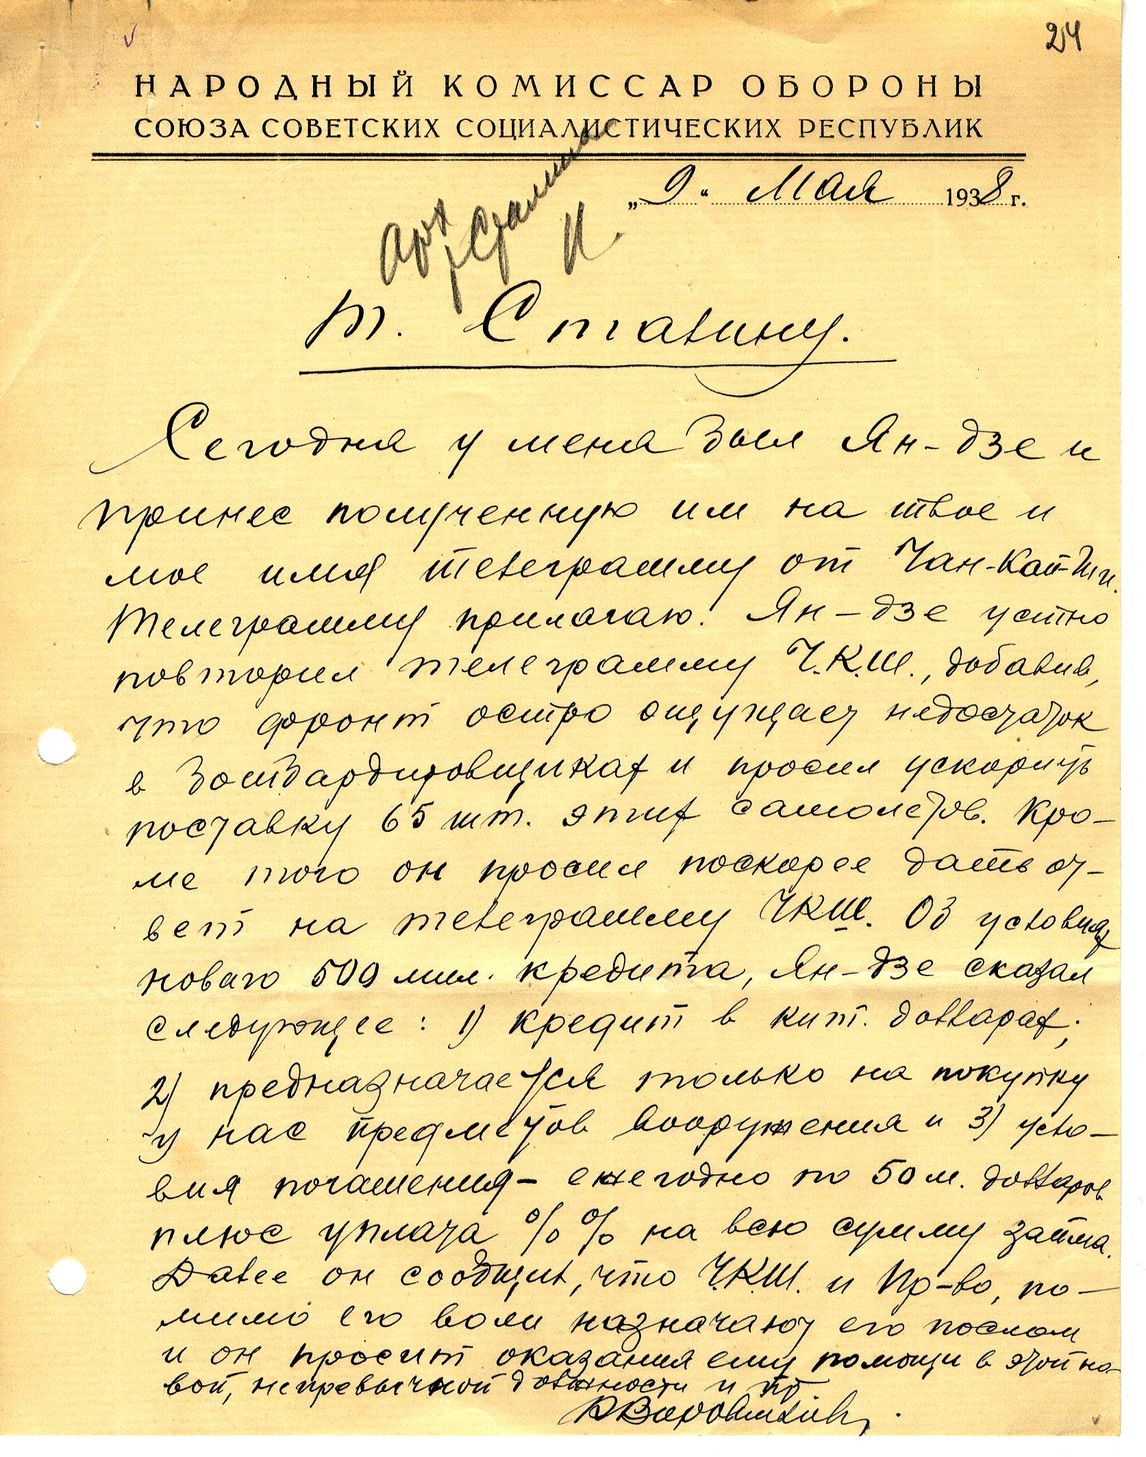 24
НАРОДНЫЙ КОМИССАР ОБОРОНЫ
СОЮЗА СОВЕТСКИХ СОЦИАЛИСТИЧЕСКИХ РЕСПУБЛИК
„9" Мая 1938 г.
Арх
Сталина
т. Сталину.
Сегодня у меня был Ян-дзе и
принес полученную им на твое и
мое имя телеграмму от Чан-Кай-Ши.
Телеграмму прилагаю. Ян-дзе устно
повторил телеграмму Ч.К.Ш., добавив,
что фронт остро ощущает недостаток
в бомбардировщиках и просил ускорить
поставку 65 шт. этих самолетов. Кро-
ме того он просил поскорее дать от-
вет на телеграмму ЧКШ. Об условиях
нового 500 мил. кредита, Ян-дзе сказал
следующее: 1) кредит в кит. долларах;
2) предназначается только на покупку
у нас предметов вооружения и 3) усло-
вия погашения - ежегодно по 50 м. долларов
плюс уплата %% на всю сумму займа.
Далее он сообщил, что Ч.К.Ш. и Пр-во, по-
мимо его воли назначают его послом
и он просит оказания ему помощи в этой но-
вой, непривычной должности и пр
КВорошилов.